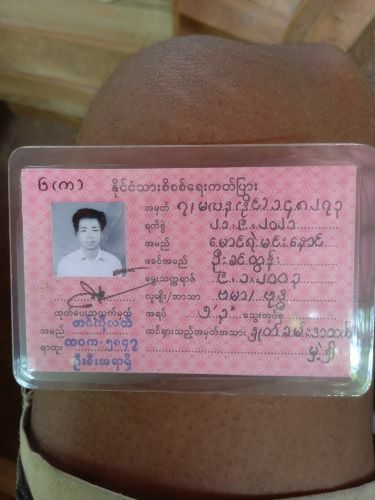 ၆(က) နိုင်ငံသားစိစစ်ရေးကတ်ပြား
အမှတ် ၇/မလန(နိုင်)၁၄၈၂၇၃
ရက်စွဲ ၂.၁.၂၀၂၁
အမည် မောင်ရဲမင်းနောင်
ဖခင်အမည် ဦးခင်ထွန်း
မွေးသက္ကရာဇ် ၉.၁.၂၀၀၃
လူမျိုး/ဘာသာ ဗမာ/ဗုဒ္ဓ
အရပ် ၅'၃" သွေးအုပ်စု
ထင်ရှားသည့်အမှတ်အသား နှုတ်ခမ်းအထက်
မှဲ့၅
ထုတ်ပေးသူလက်မှတ်
အမည် တင်ကိုလတ်
ရာထူး လဝက-၅၈၄၇
ဦးစီးအရာရှိ